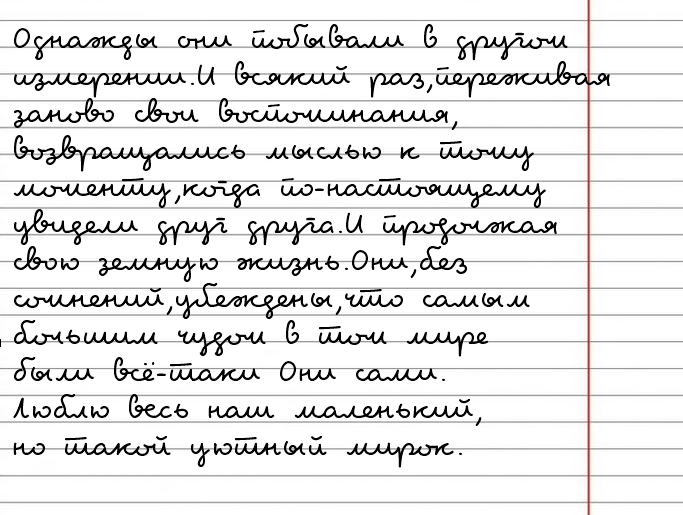 Однажды они побывали в другом
измерении.И всякий раз,переживая
заново свои воспоминания,
возвращались мыслью к тому
моменту,когда по-настоящему
увидели друг друга.И продолжая
свою земную жизнь.Они,без
сомнений,убеждены,что самым
большим чудом в том мире
были всё-таки Они сами.
Люблю весь наш маленький,
но такой уютный мирок.